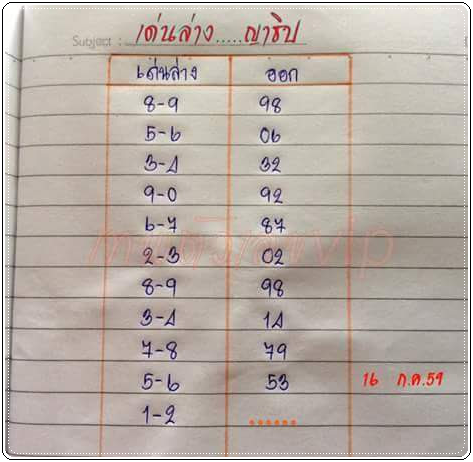 Subject : เด่นล่าง.....ญาธิป
เด่นล่าง ออก
8-9 98
5-6 06
3-4 32
9-0 92
6-7 87
2-3 02
8-9 98
3-4 14
7-8 79
5-6 53 16 ก.ค.59
1-2 ......